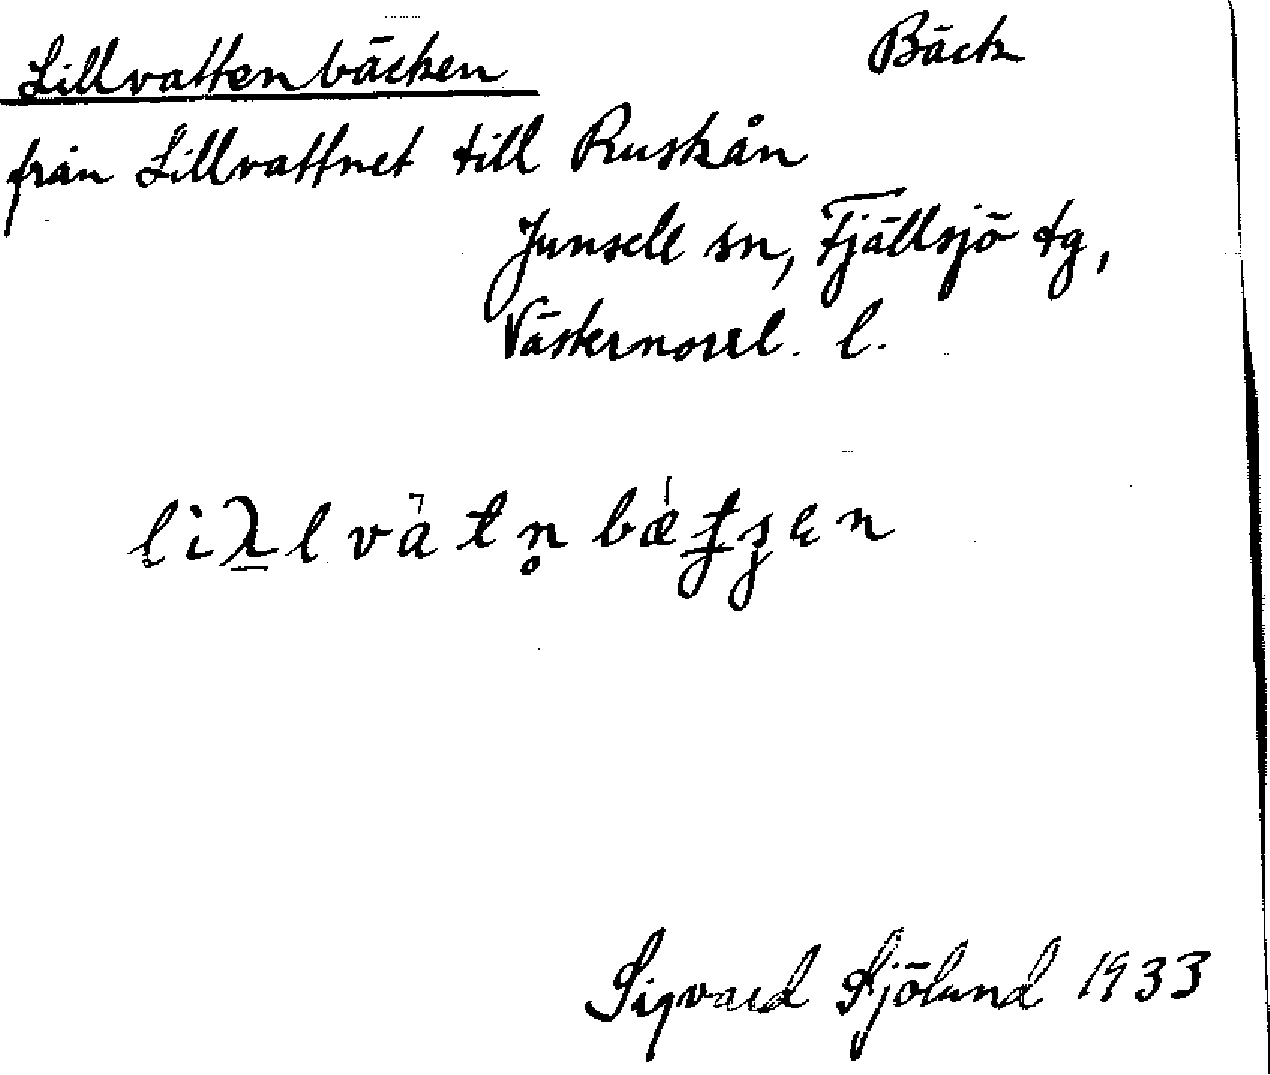 Lillvattenbäcken Bäck
från Lillvattnet till Ruskån
Junsele sn, Fjällsjö tg,
Västernorrl. l.
Sigvard Sjölund 1933